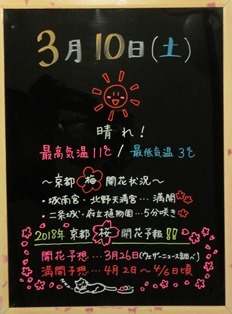 3月10日(土)
晴れ!
最高気温11℃/最低気温3℃
～京都 梅 開花状況～
・城南宮・北野天満宮…満開
・二条城・府立植物園…5分咲き
2018年 京都 桜 開花予報!!
開花予想…3月26日(ウェザーニュース調べ)
満開予想…4月2日～4/6日頃